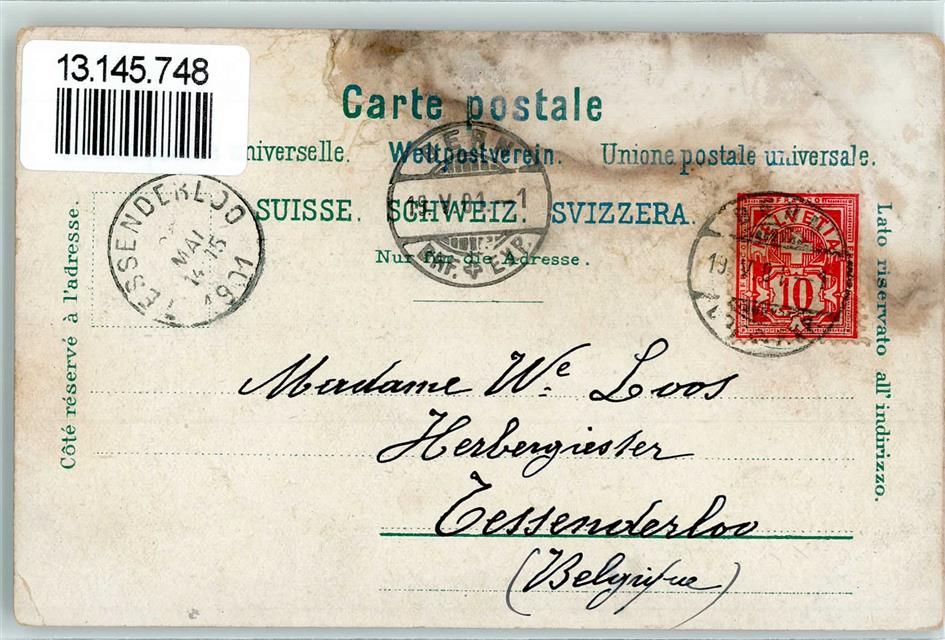 13.145.748
Carte postale
niverselle. Weltpostverein. Unione postale universale.
SUISSE. SCHWEIZ. SVIZZERA.
Nur für die Adresse.
Côté réservé à l'adresse.
Lato riservato all' indirizzo.
TESSENDERLOO
MAI
14-15
1901
BERN
19.V.01.-1
BRF. EXP.
FRANCO
HELVETIA
10
19.V
Madame We. Loos
Herbergiester
Tessenderloo
(Belgique)